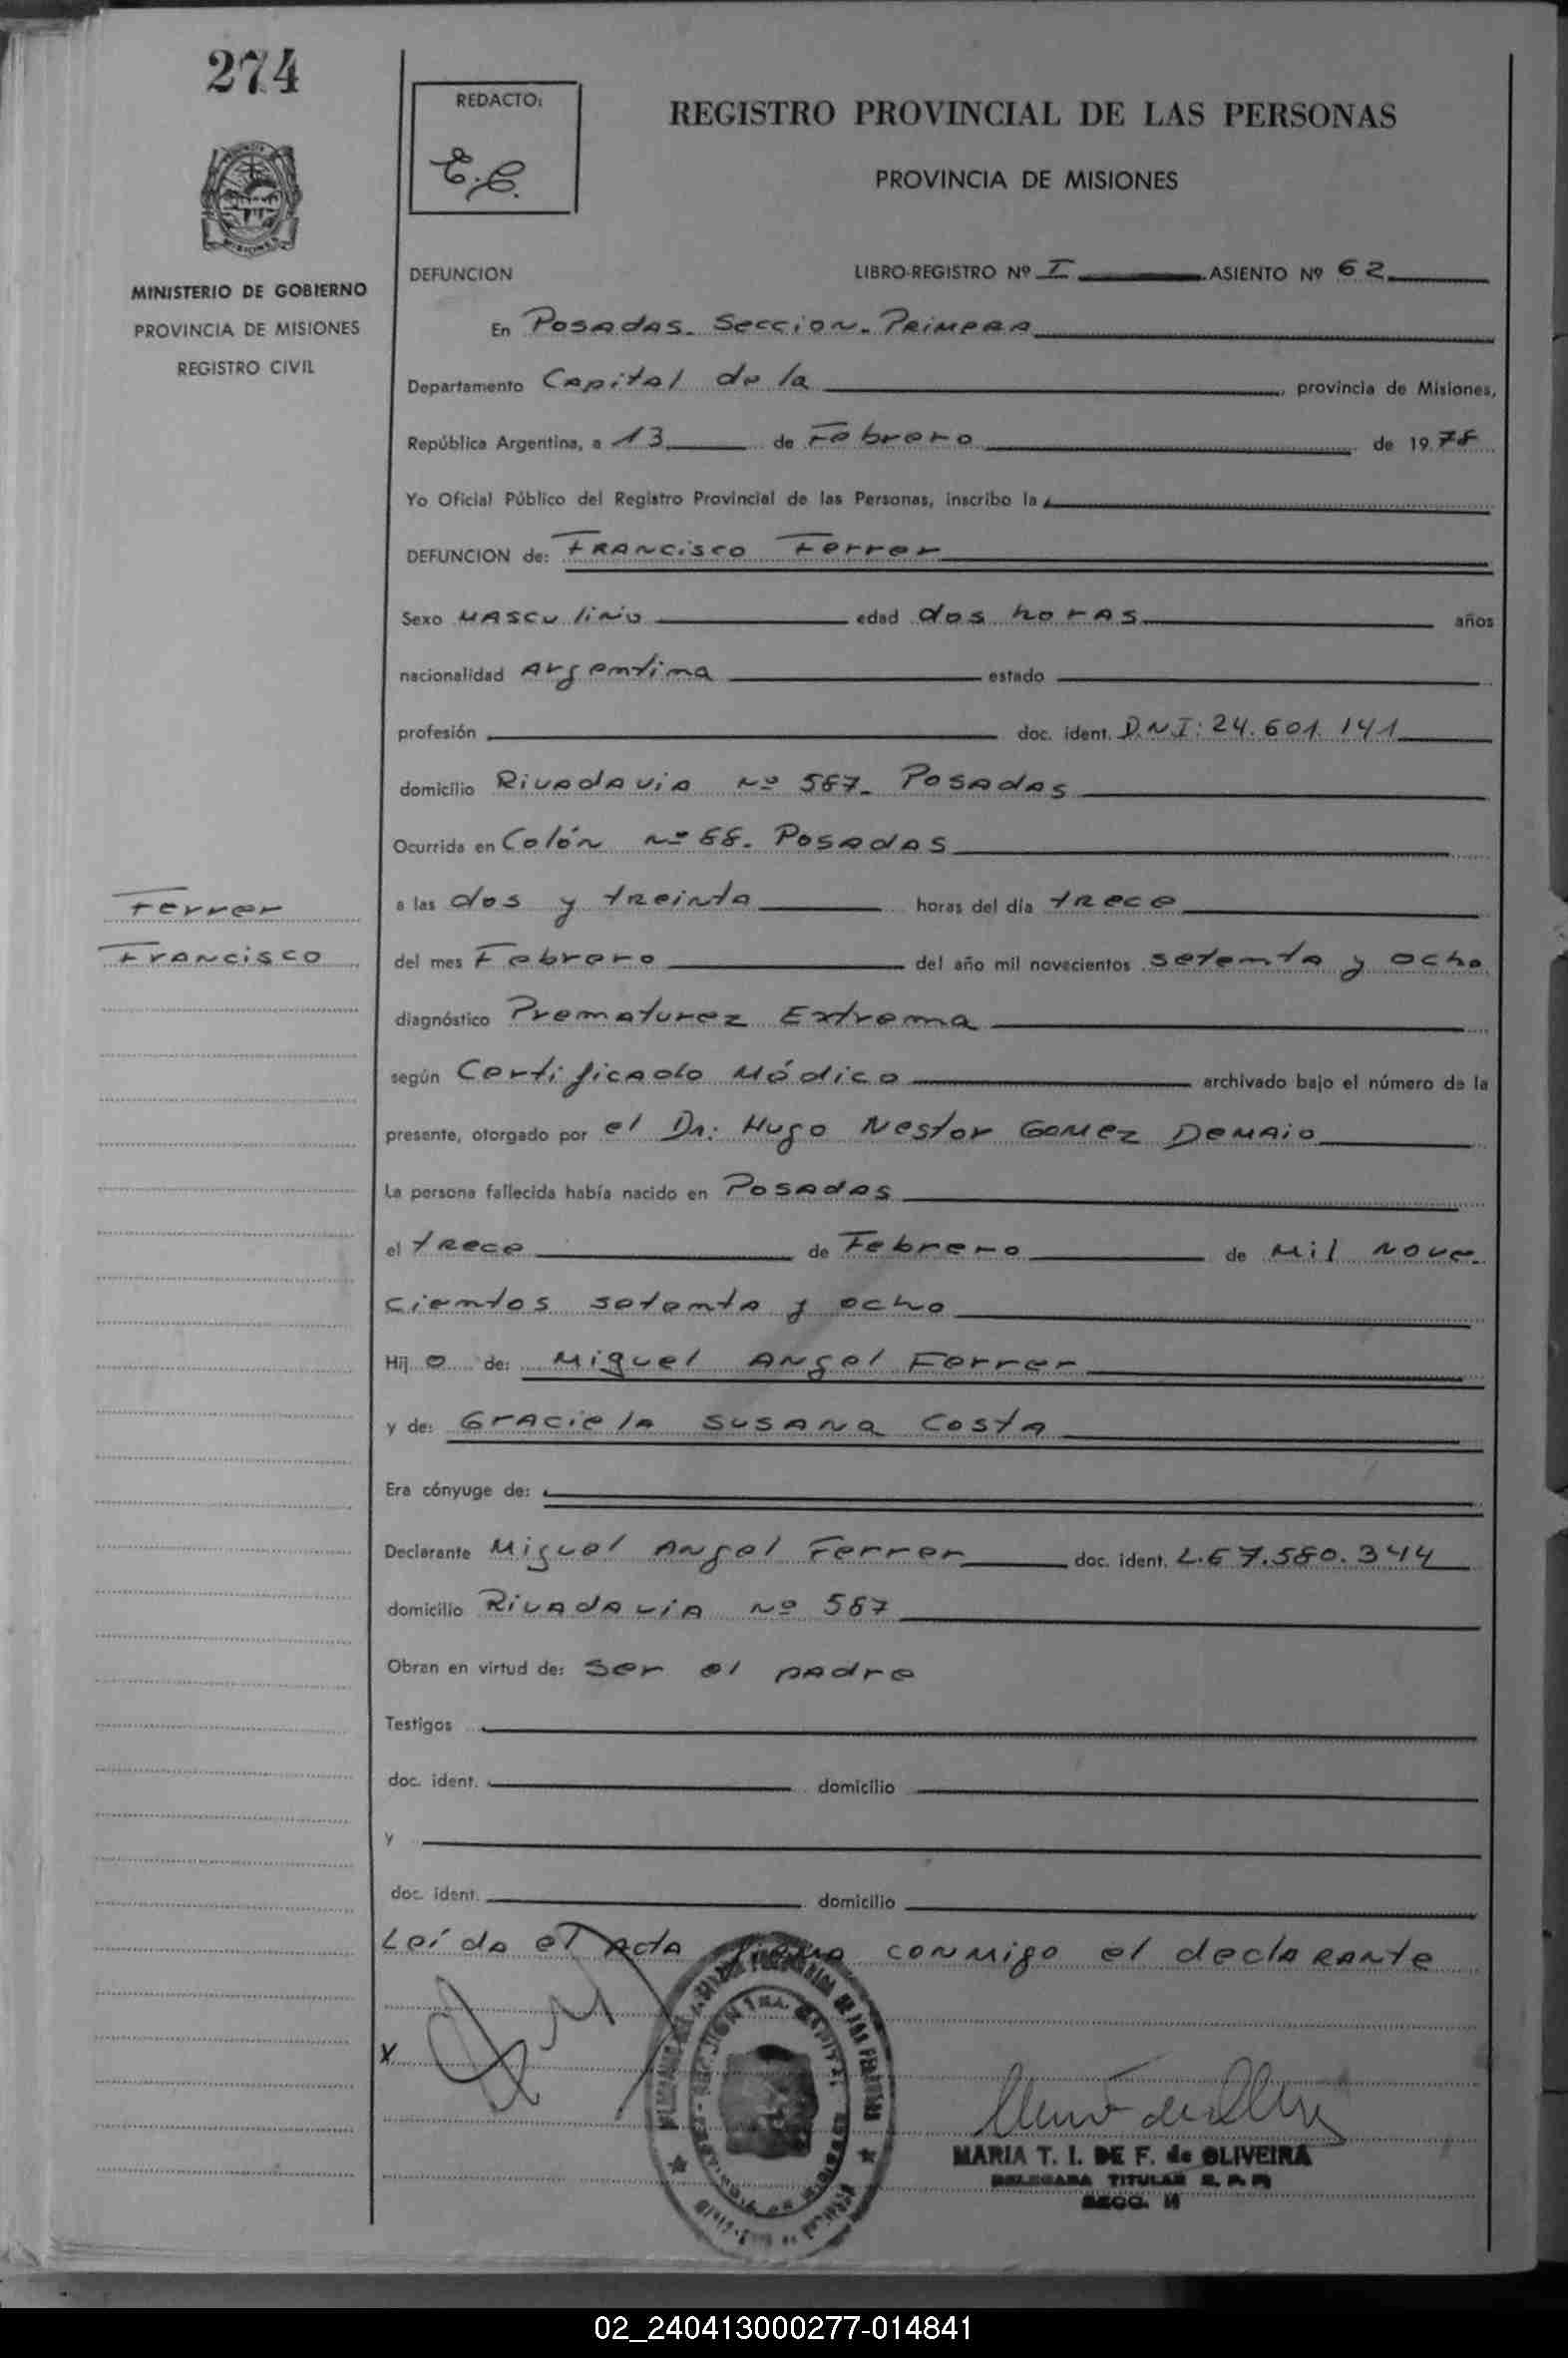 274
REDACTO:
E.C.
REGISTRO PROVINCIAL DE LAS PERSONAS
PROVINCIA DE MISIONES
MISIONES
MINISTERIO DE GOBIERNO
PROVINCIA DE MISIONES
REGISTRO CIVIL
DEFUNCION LIBRO-REGISTRO Nº I ASIENTO Nº 62
En Posadas. Seccion. Primera
Departamento Capital de la , provincia de Misiones,
República Argentina, a 13 de Febrero de 1978
Yo Oficial Público del Registro Provincial de las Personas, inscribo la
DEFUNCION de: Francisco Ferrer
Sexo Masculino edad dos horas años
nacionalidad Argentina estado
profesión doc. ident. D.N.I: 24.601.141
domicilio Rivadavia Nº 587. Posadas
Ocurrida en Colón Nº 88. Posadas
Ferrer
Francisco
a las dos y treinta horas del día trece
del mes Febrero del año mil novecientos setenta y ocho
diagnóstico Prematurez Extrema
según Certificado Médico archivado bajo el número de la
presente, otorgado por el Dr: Hugo Nestor Gomez Demaio
La persona fallecida había nacido en Posadas
el trece de Febrero de Mil Nove-
cientos setenta y ocho
Hij o de: Miguel Angel Ferrer
y de: Graciela Susana Costa
Era cónyuge de:
Declarante Miguel Angel Ferrer doc. ident. L.E 7.580.344
domicilio Rivadavia Nº 587
Obran en virtud de: Ser el padre
Testigos
doc. ident. domicilio
y
doc. ident. domicilio
Leída el Acta firma conmigo el declarante
X
MARIA T. I. DE F. de OLIVEIRA
DELEGADA TITULAR R. P. P.
SECC.
02_240413000277-014841